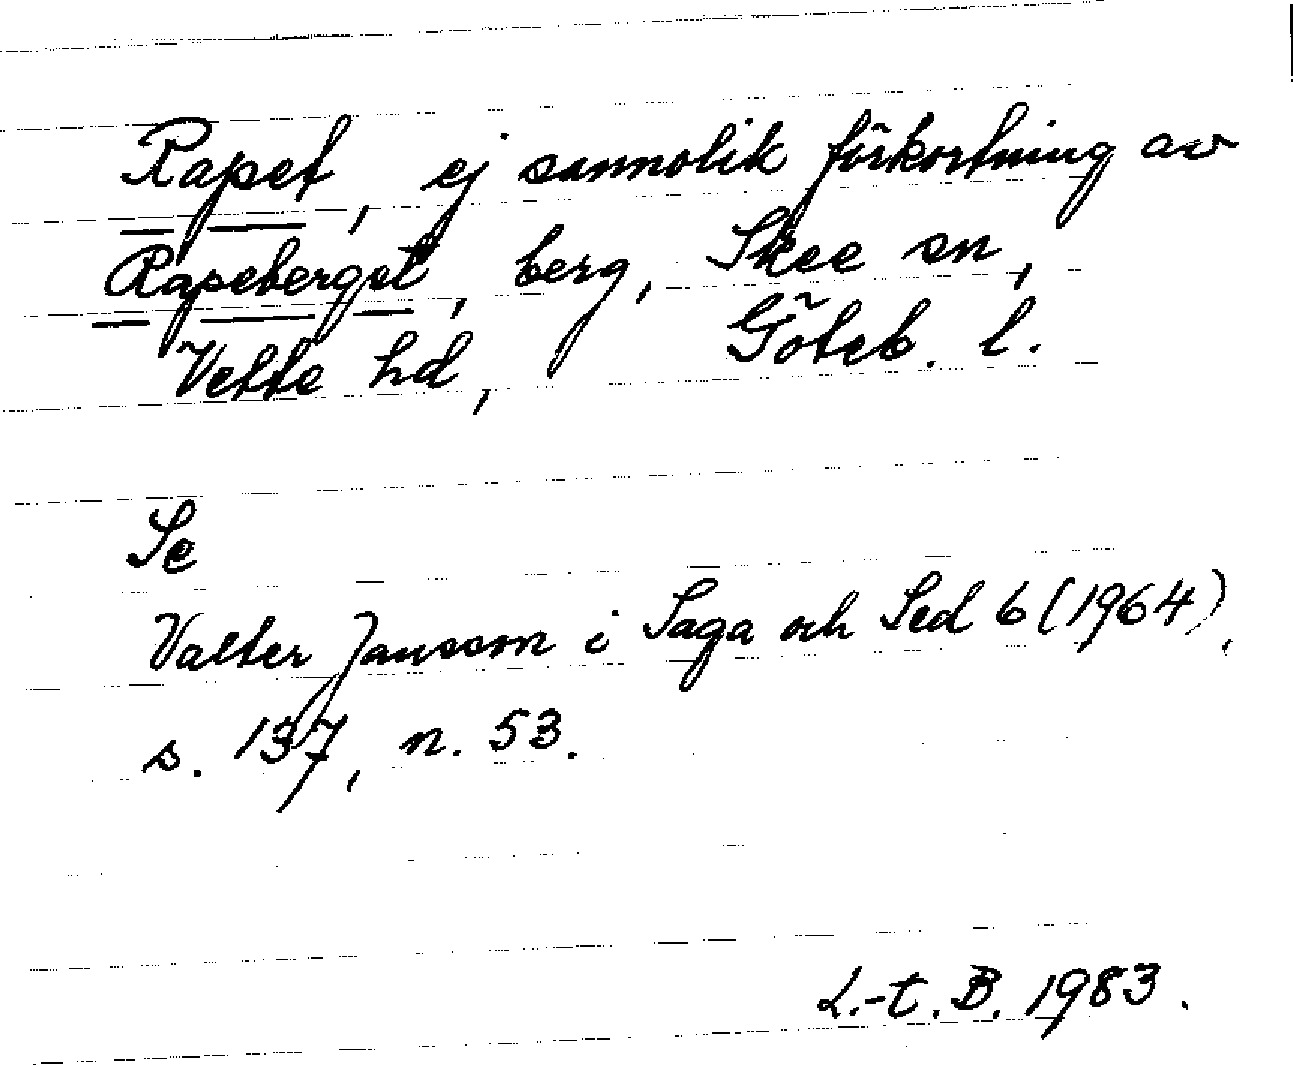 Rapet, ej sannolik förkortning av
Rapeberget, berg, Skee sn,
Vette hd, Göteb. l.
Se
Valter Jansson i Saga och Sed 6 (1964),
s. 137, n. 53.
L.-t. B. 1983.